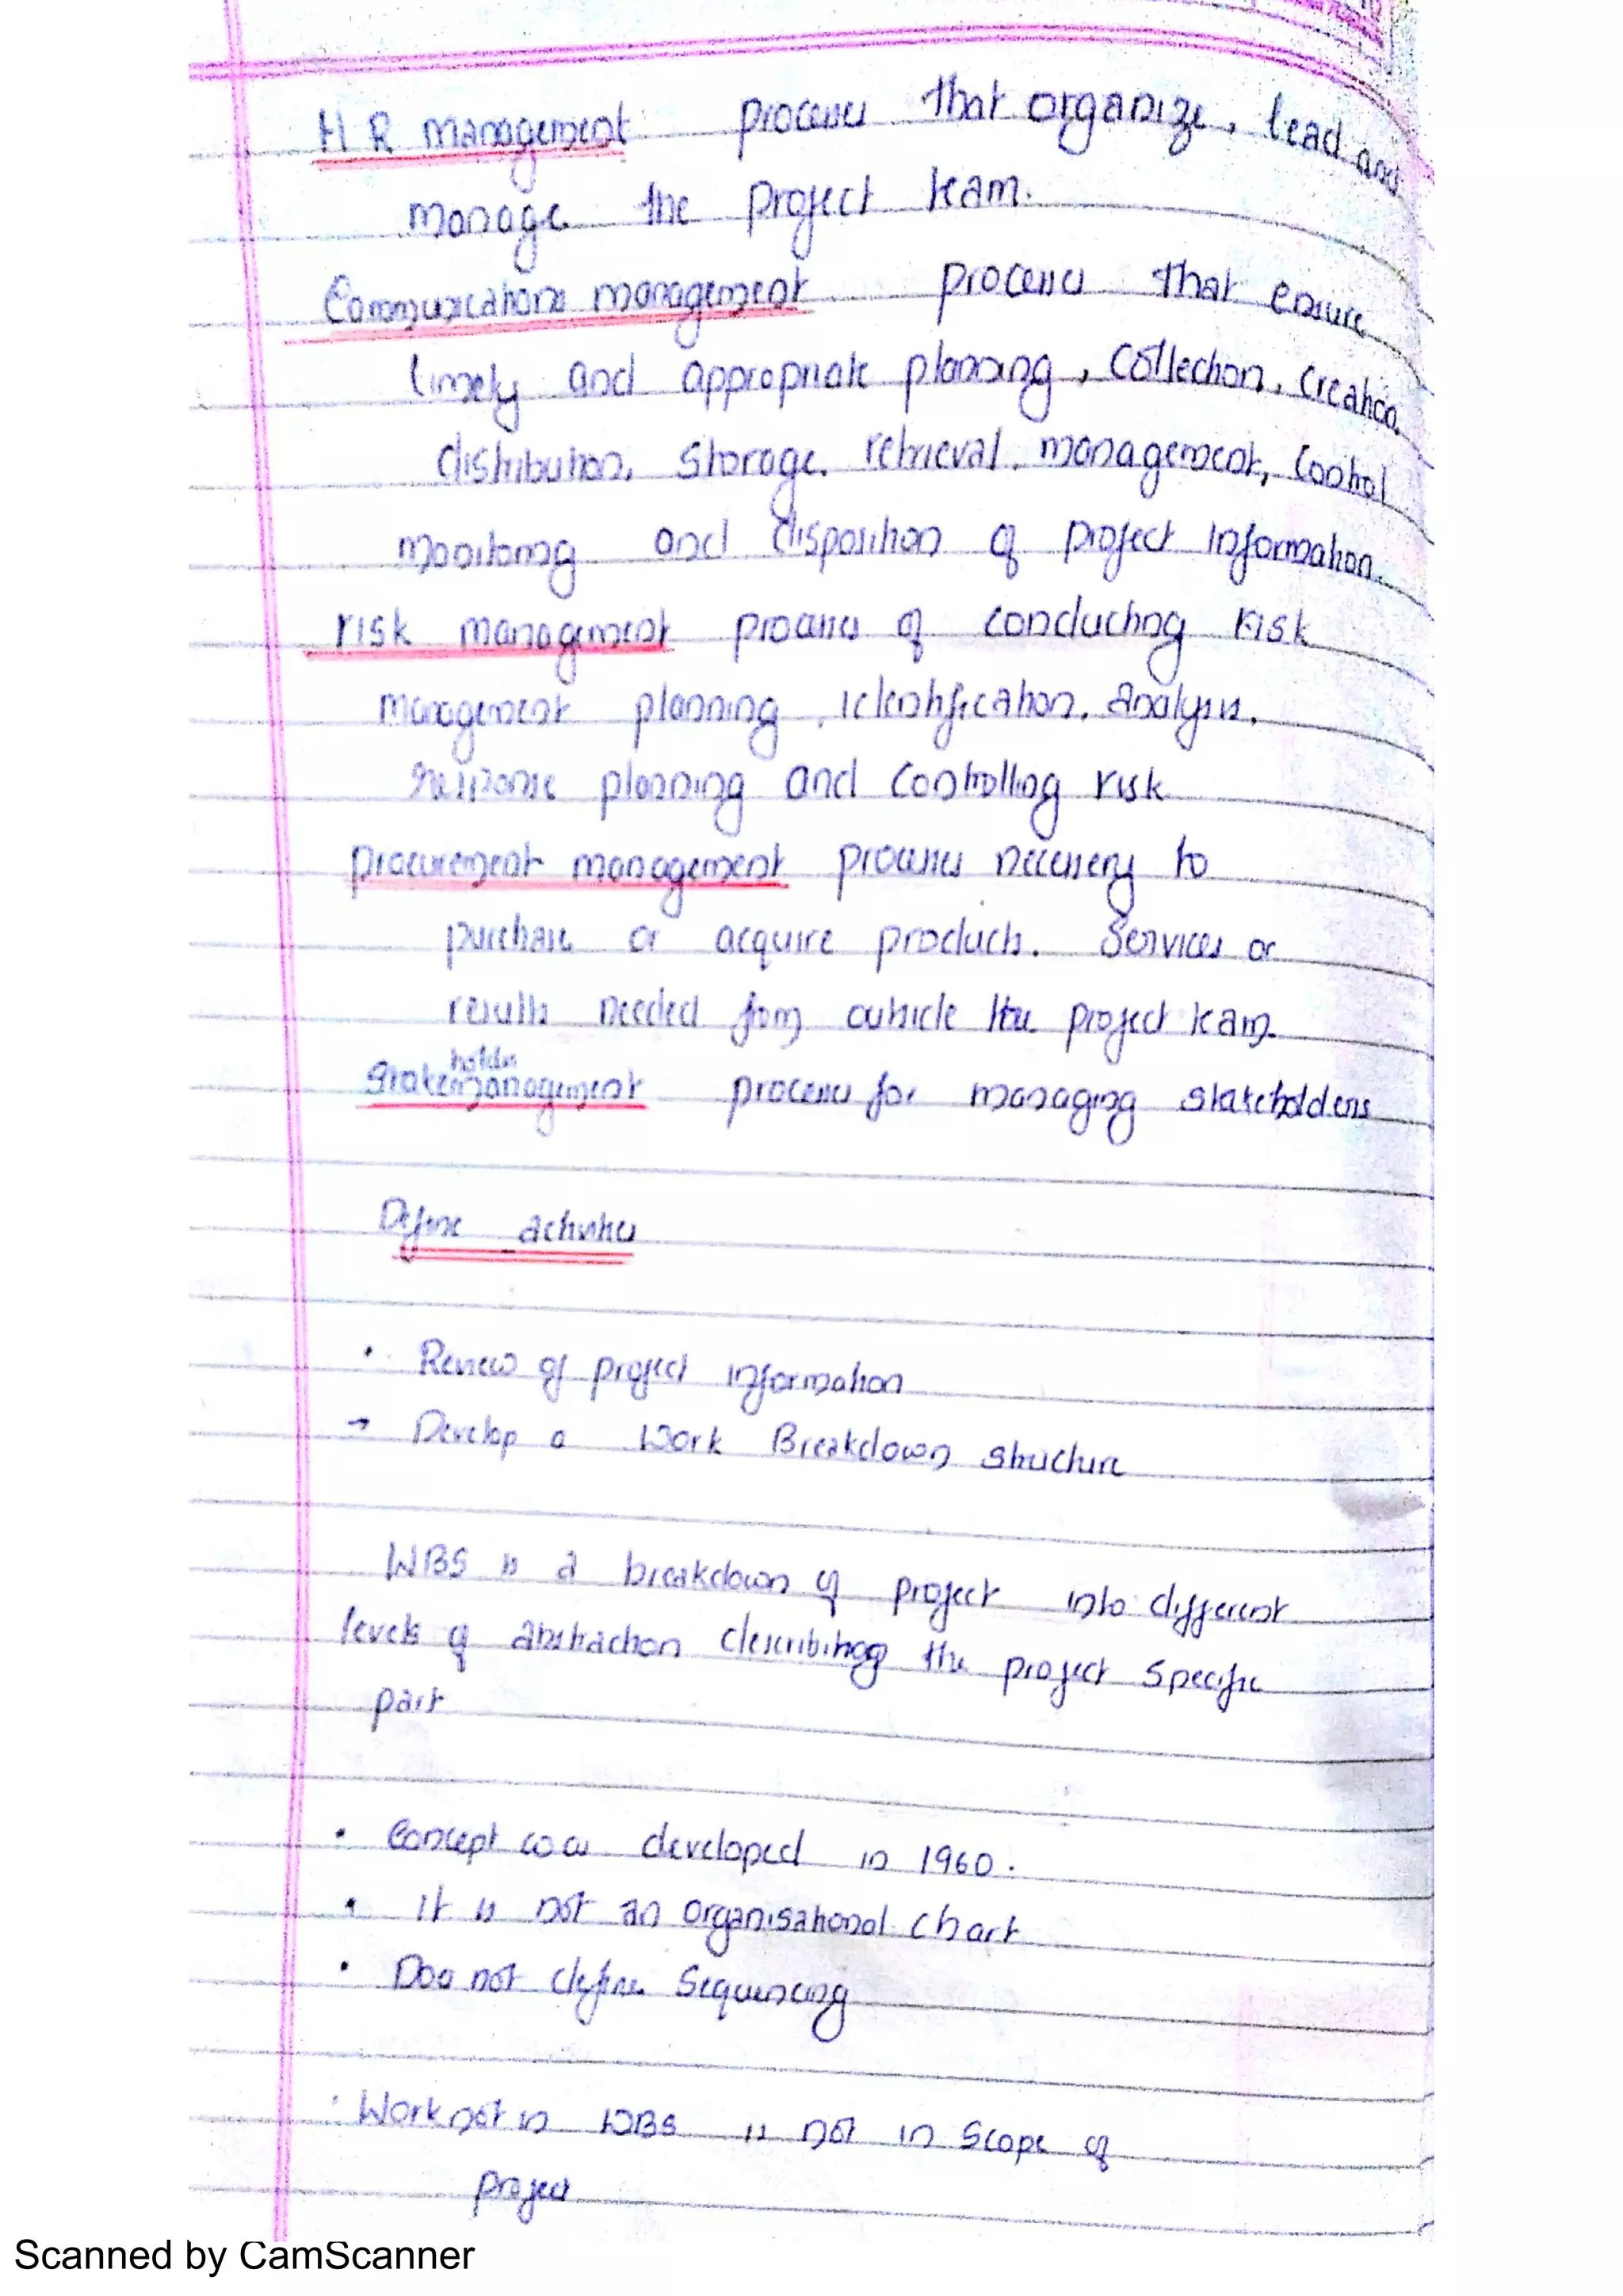 H R management processes that organize, lead and
manage the project team.
Communications management processes that ensure
timely and appropriate planning, Collection, Creation
distribution, storage, retrieval, management, Control
monitoring and disposition of project Information.
risk management process of conducting risk
management planning, identification, analysis,
response planning and Controlling risk
procurement management processes necessery to
purchase or acquire products. Services or
results needed from outside the project team.
Stakeholder management processes for managing stakeholders
Define activities
• Review of project information
→ Develop a Work Breakdown structure
WBS is a breakdown of project into different
levels of abstraction describing the project specific
part
• Concept was developed in 1960.
• It is not an organisational chart
• Does not define Sequencing
• Work not in WBS is not in Scope of
project
Scanned by CamScanner